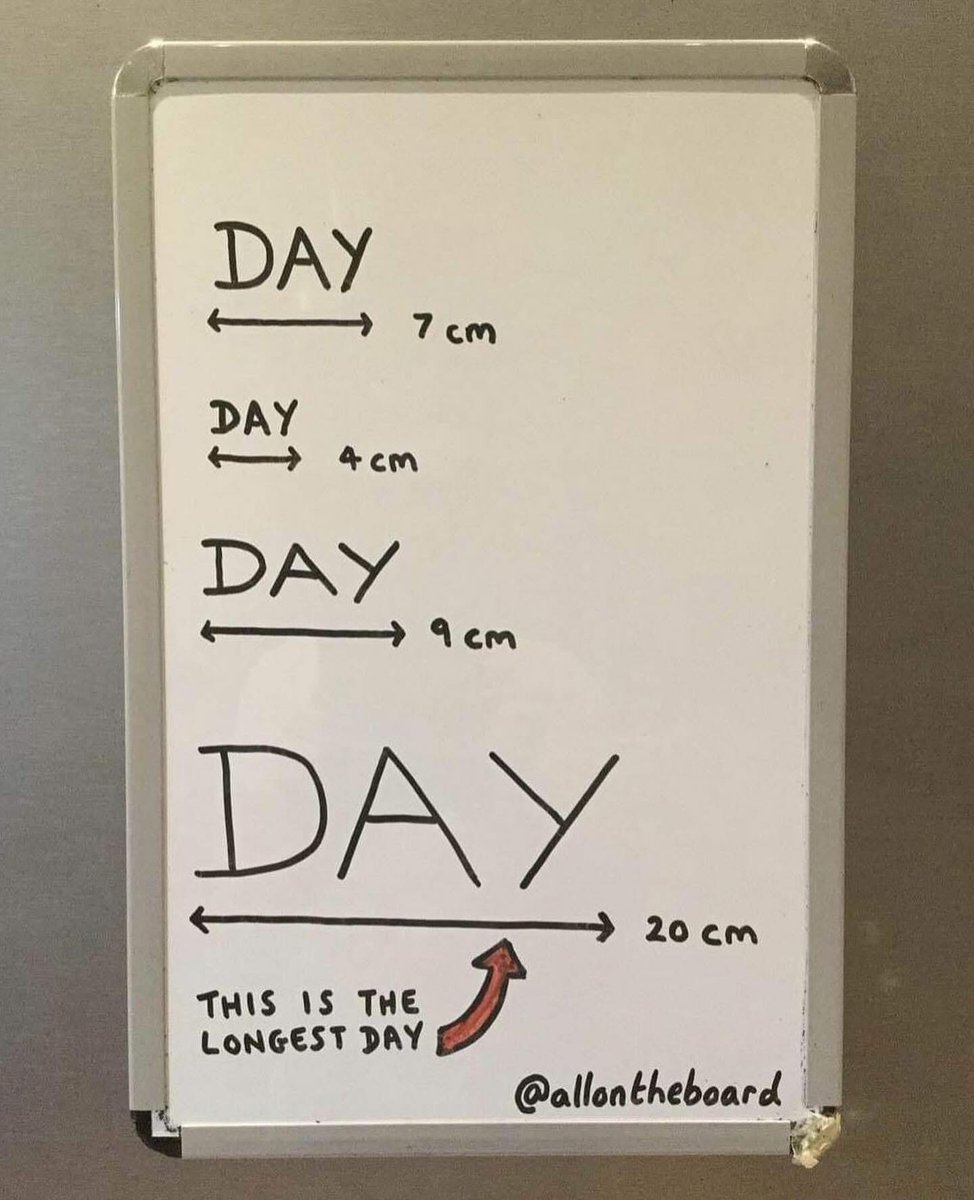 DAY
7 cm
DAY
4 cm
DAY
9 cm
DAY
20 cm
THIS IS THE
LONGEST DAY
@allontheboard